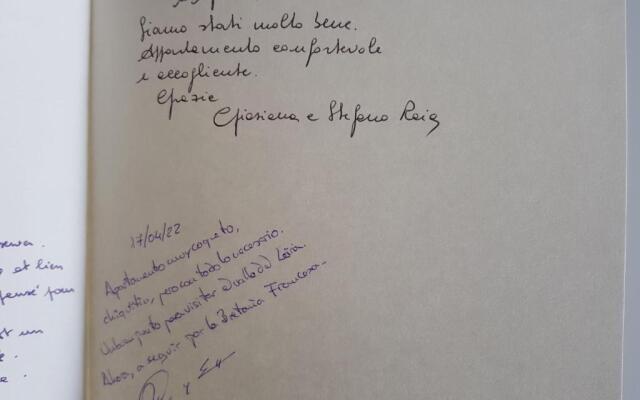 Siamo stati molto bene.
Appartamento confortevole
e accogliente.
Grazie
e Stefano
17/04/22
Apartamento muy coqueto,
chiquitito, pero con todo lo necesario.
Un buen punto para visitar el valle del Loira.
Ahora, a seguir por la Bretaña Francesa.
y
et bien
pensé pour
est un